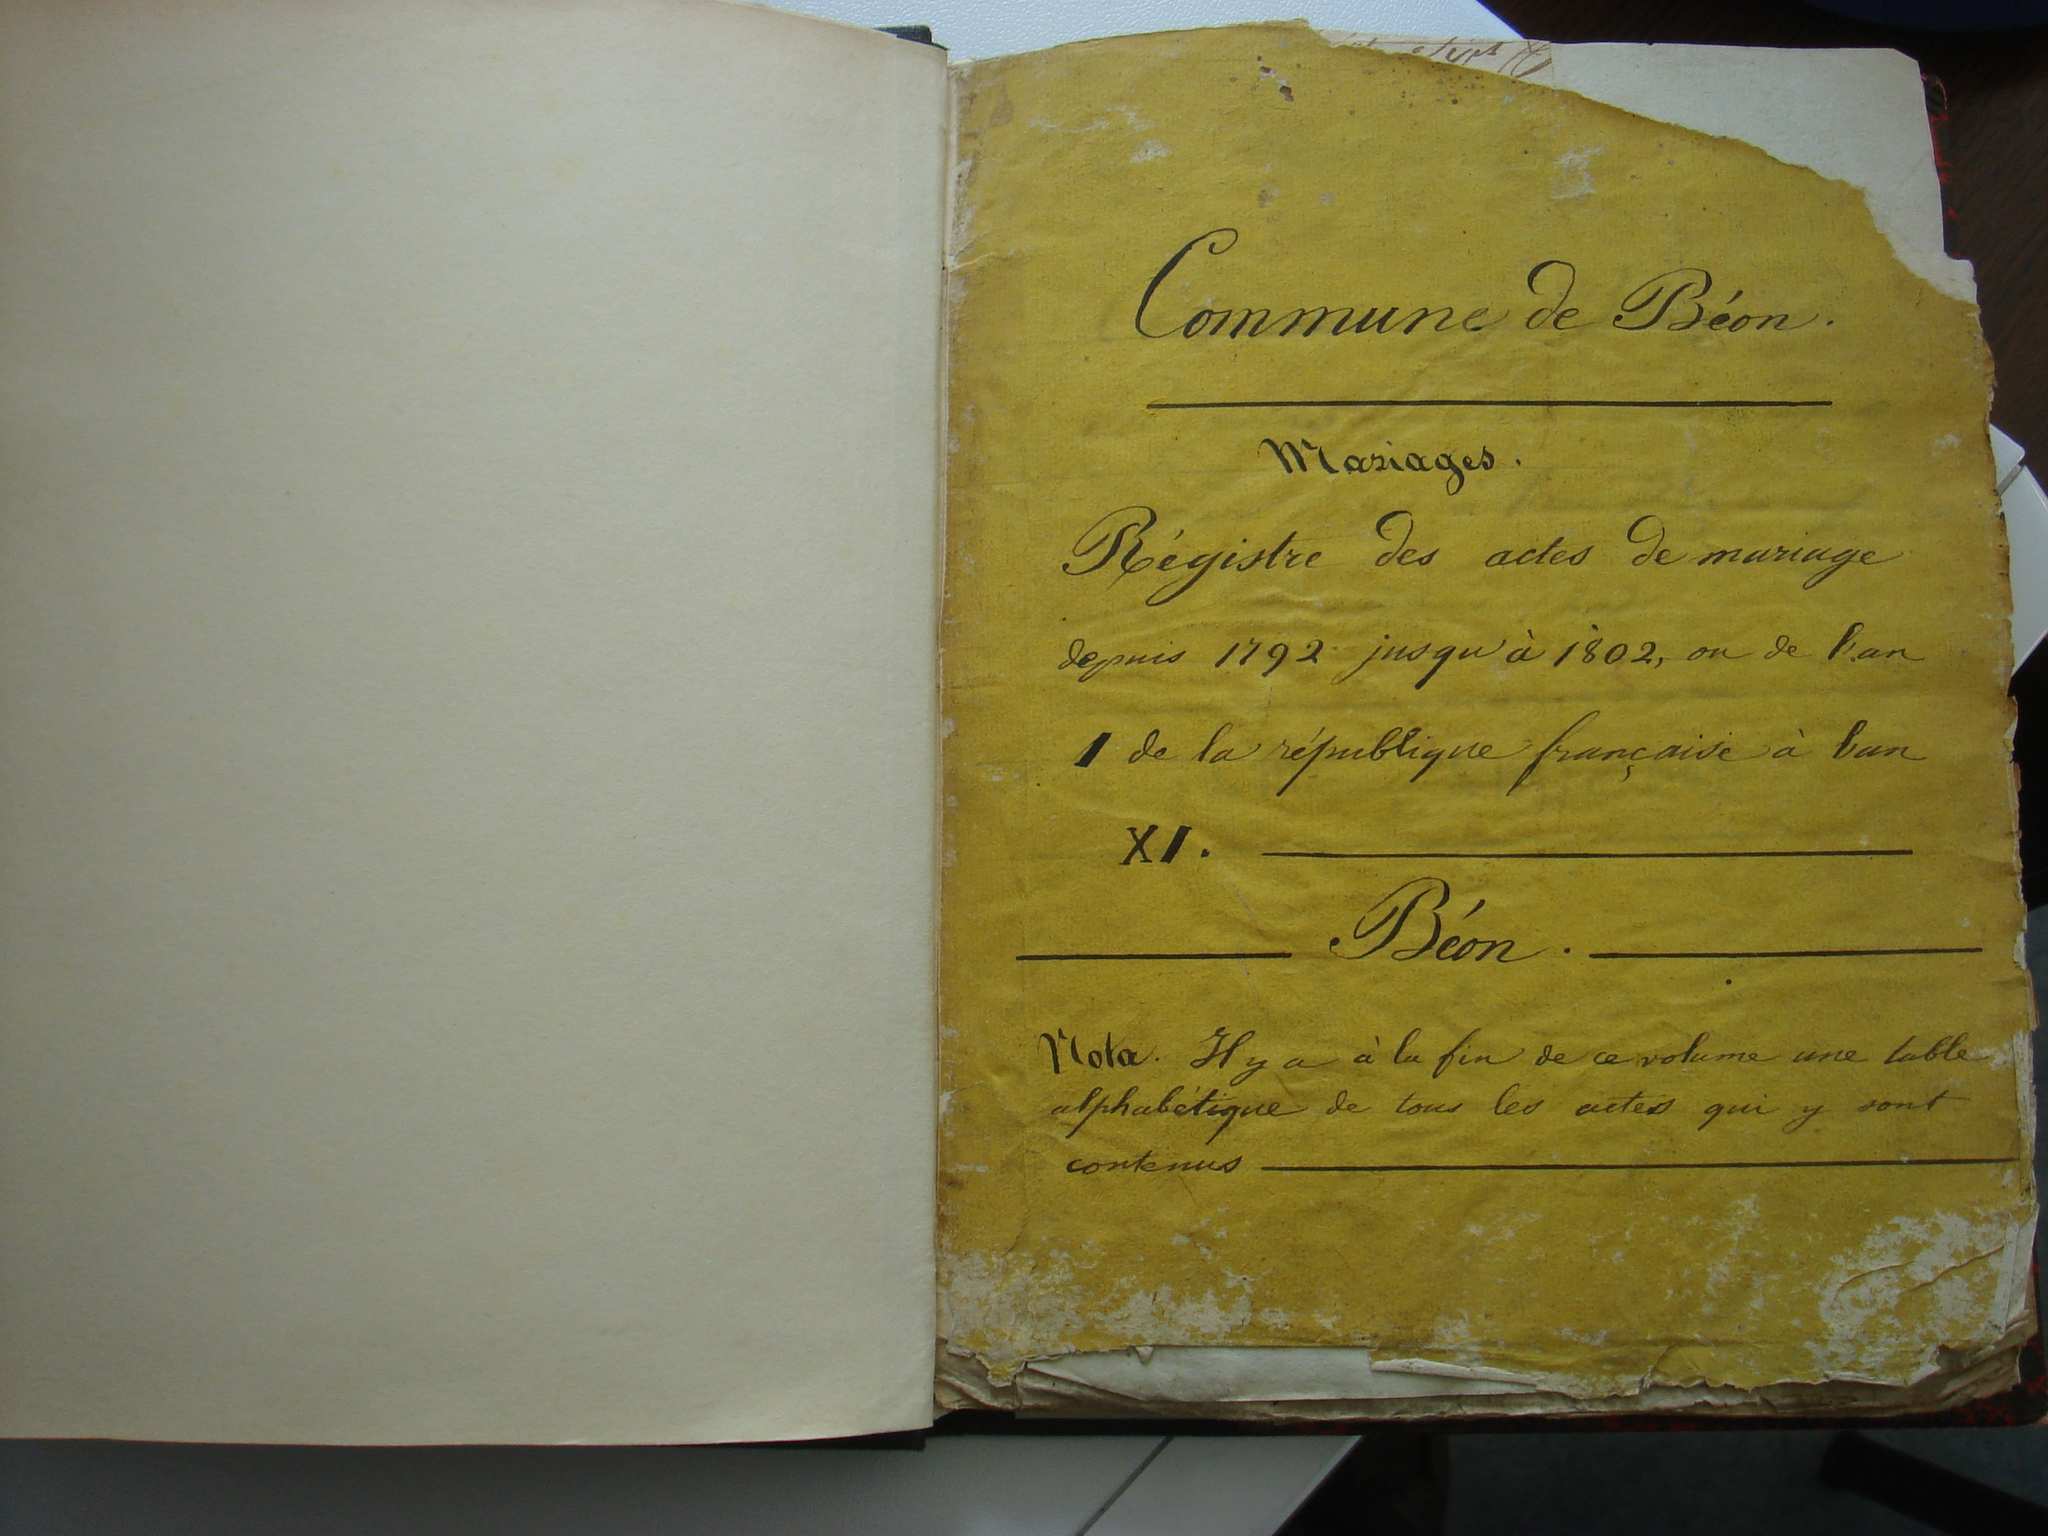 Commune de Béon.
Mariages.
Régistre des actes de mariage
depuis 1792 jusqu'à 1802, ou de l'an
I de la république française à l'an
XI.
Béon.
Nota. Il y a à la fin de ce volume une table
alphabétique de tous les actes qui y sont
contenus